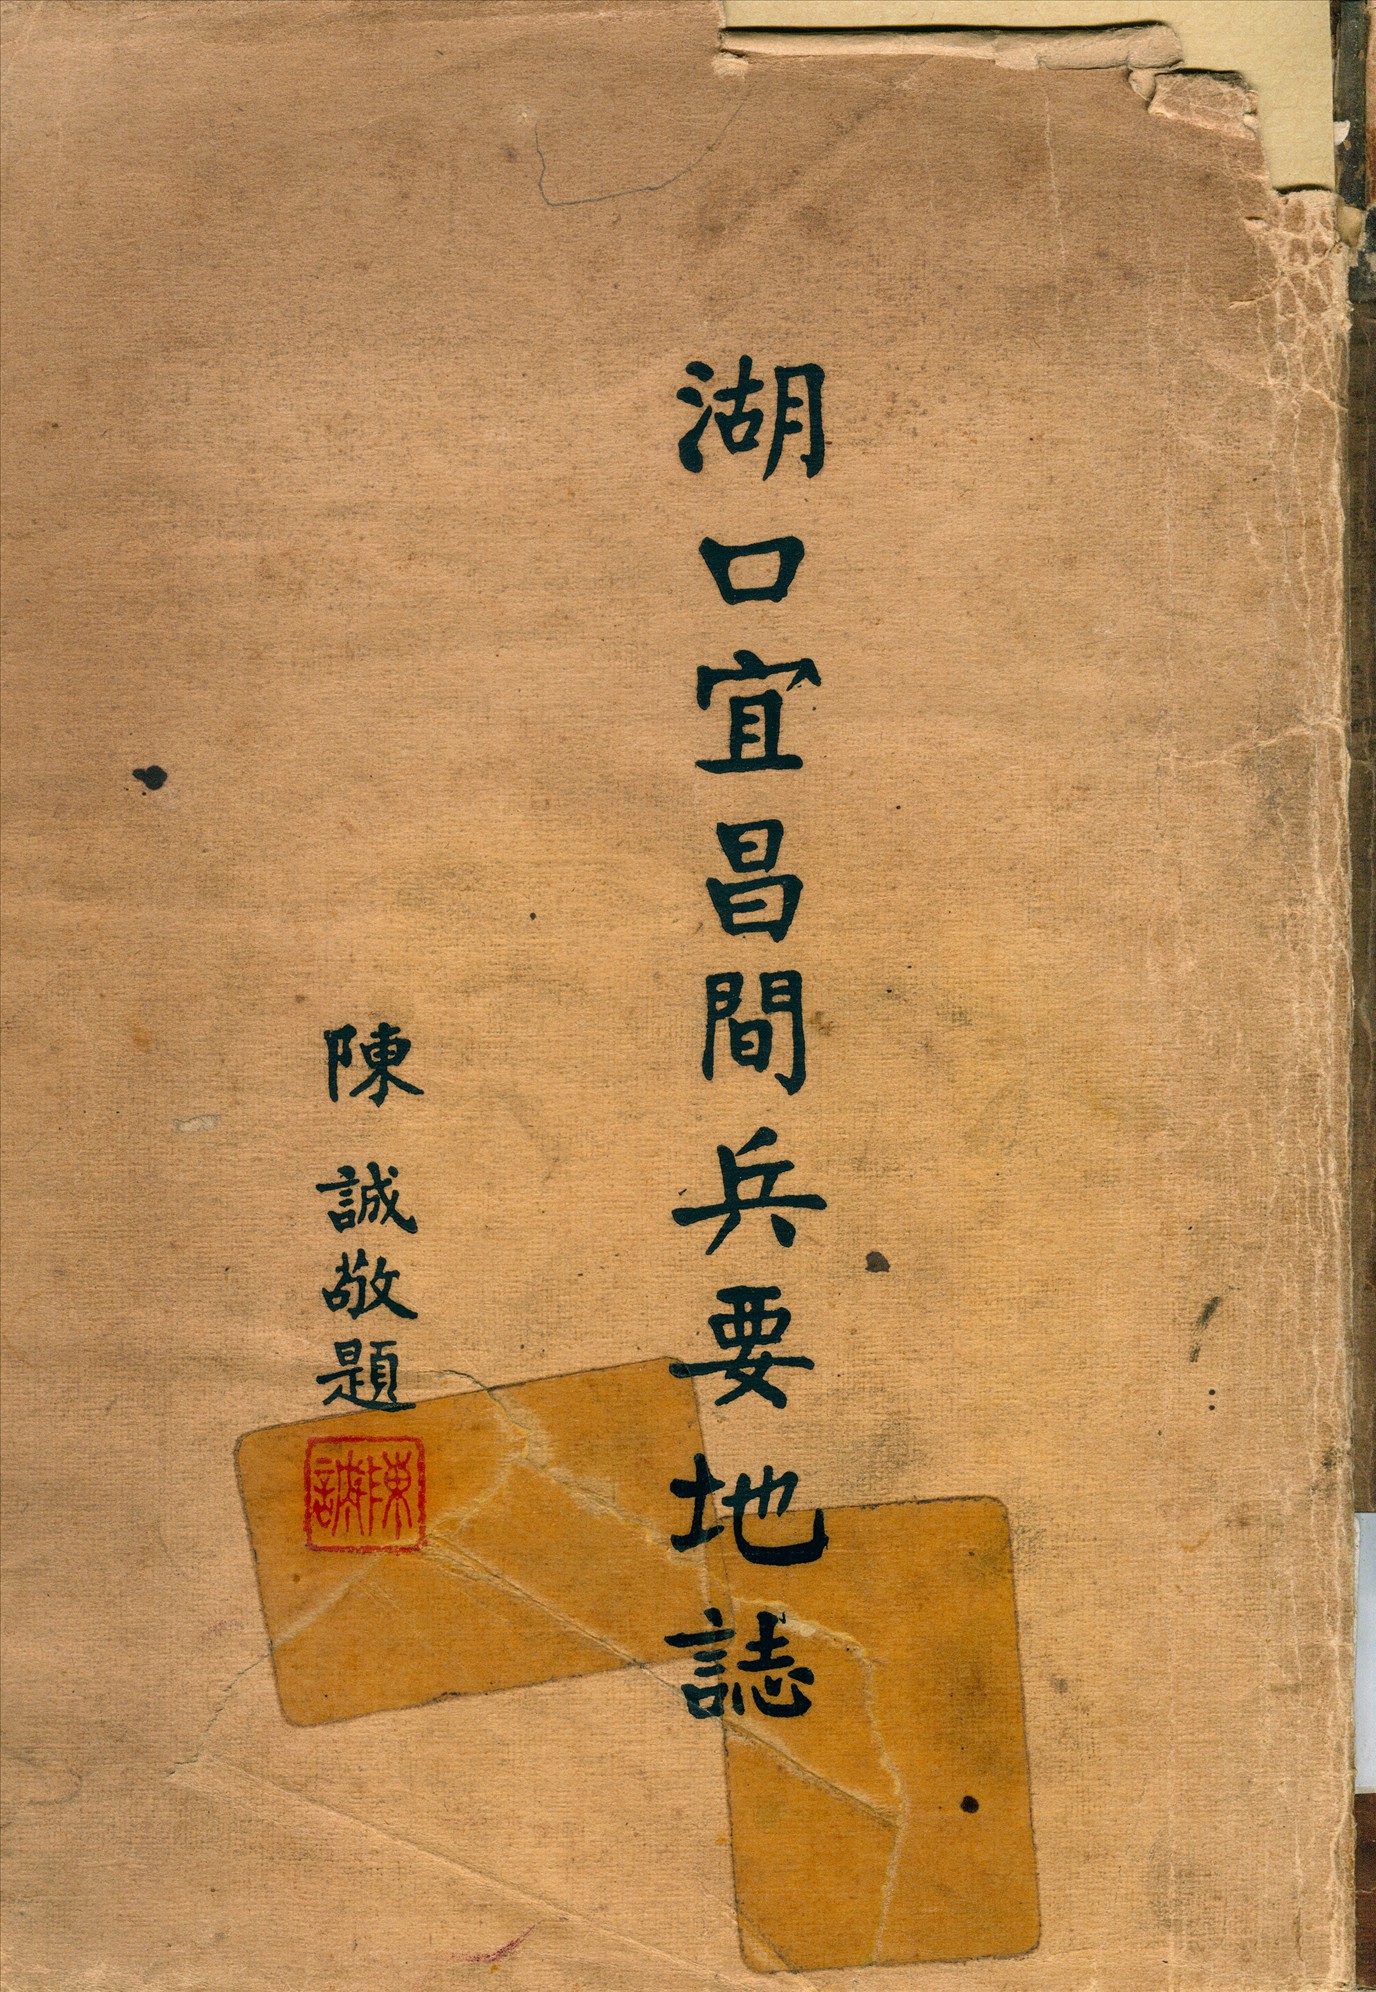 湖口宜昌間兵要地誌
陳誠敬題
陳誠